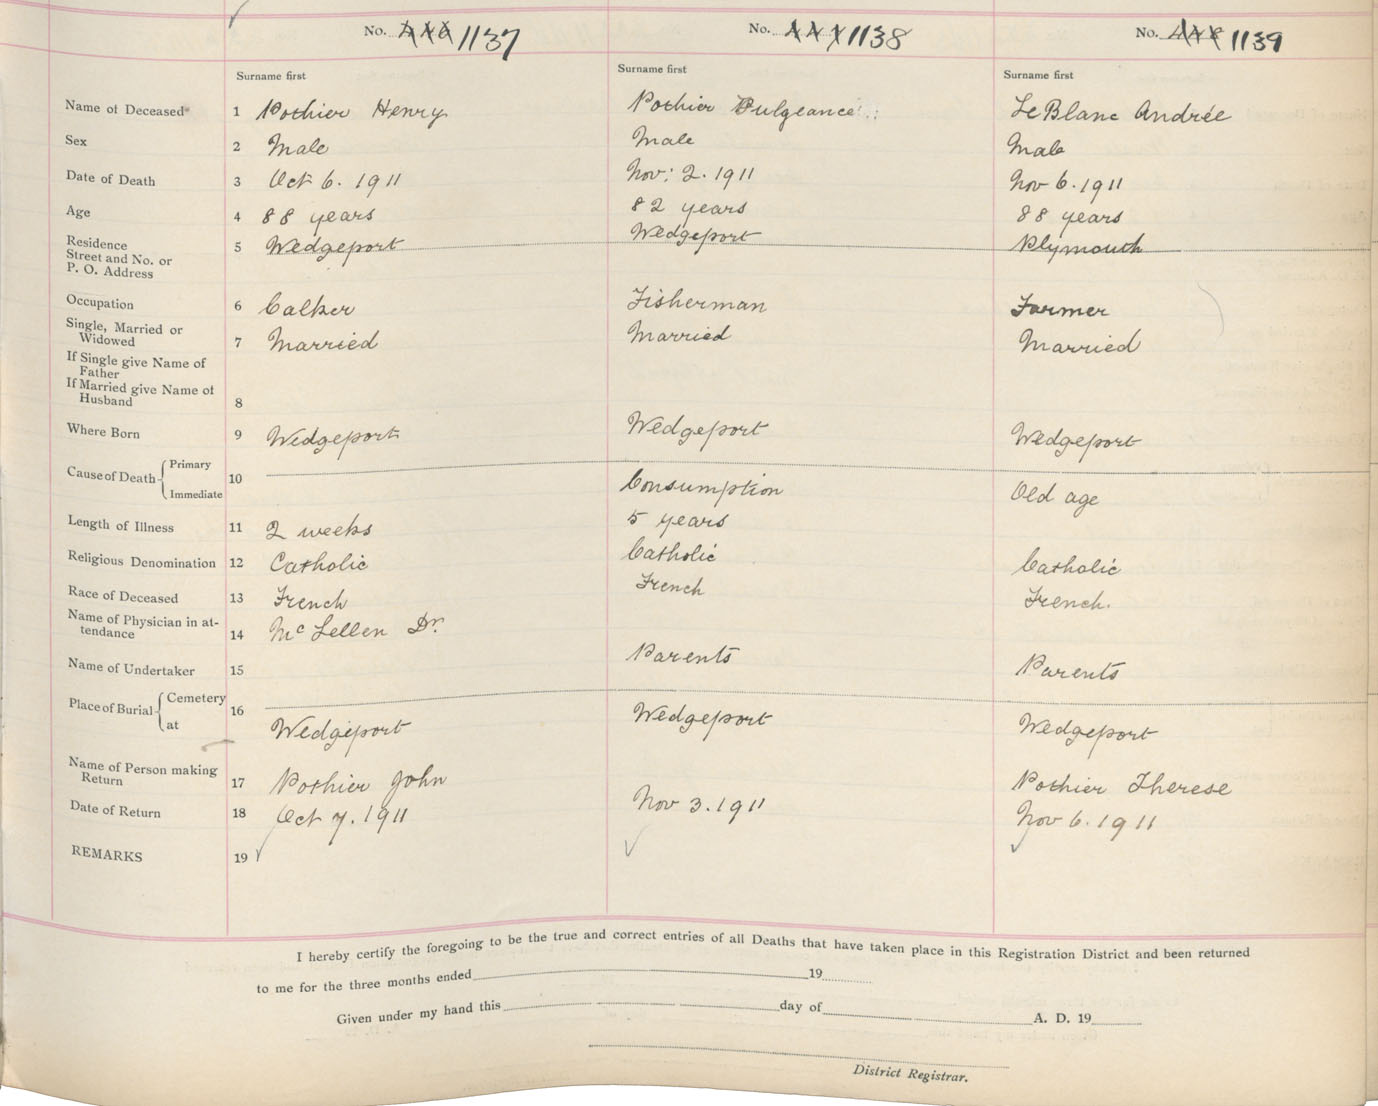 No. 1137 No. 1138 No. 1139
Surname first Surname first Surname first
Name of Deceased 1 Pothier Henry Pothier Fulgeance LeBlanc Andrée
Sex 2 Male Male Male
Date of Death 3 Oct 6. 1911 Nov: 2. 1911 Nov 6. 1911
Age 4 88 years 82 years 88 years
Residence
Street and No. or
P. O. Address 5 Wedgeport Wedgeport Plymouth
Occupation 6 Calker Fisherman Farmer
Single, Married or
Widowed 7 Married Married Married
If Single give Name of
Father
If Married give Name of
Husband 8
Where Born 9 Wedgeport Wedgeport Wedgeport
Cause of Death Primary
Immediate 10 Consumption Old age
Length of Illness 11 2 weeks 5 years
Religious Denomination 12 Catholic Catholic Catholic
Race of Deceased 13 French French French.
Name of Physician in at-
tendance 14 McLellen Dr.
Name of Undertaker 15 Parents Parents
Place of Burial Cemetery
at 16 Wedgeport Wedgeport Wedgeport
Name of Person making
Return 17 Pothier John Pothier Therese
Date of Return 18 Oct 7. 1911 Nov 3. 1911 Nov 6. 1911
REMARKS 19
I hereby certify the foregoing to be the true and correct entries of all Deaths that have taken place in this Registration District and been returned
to me for the three months ended 19
Given under my hand this day of A. D. 19
District Registrar.